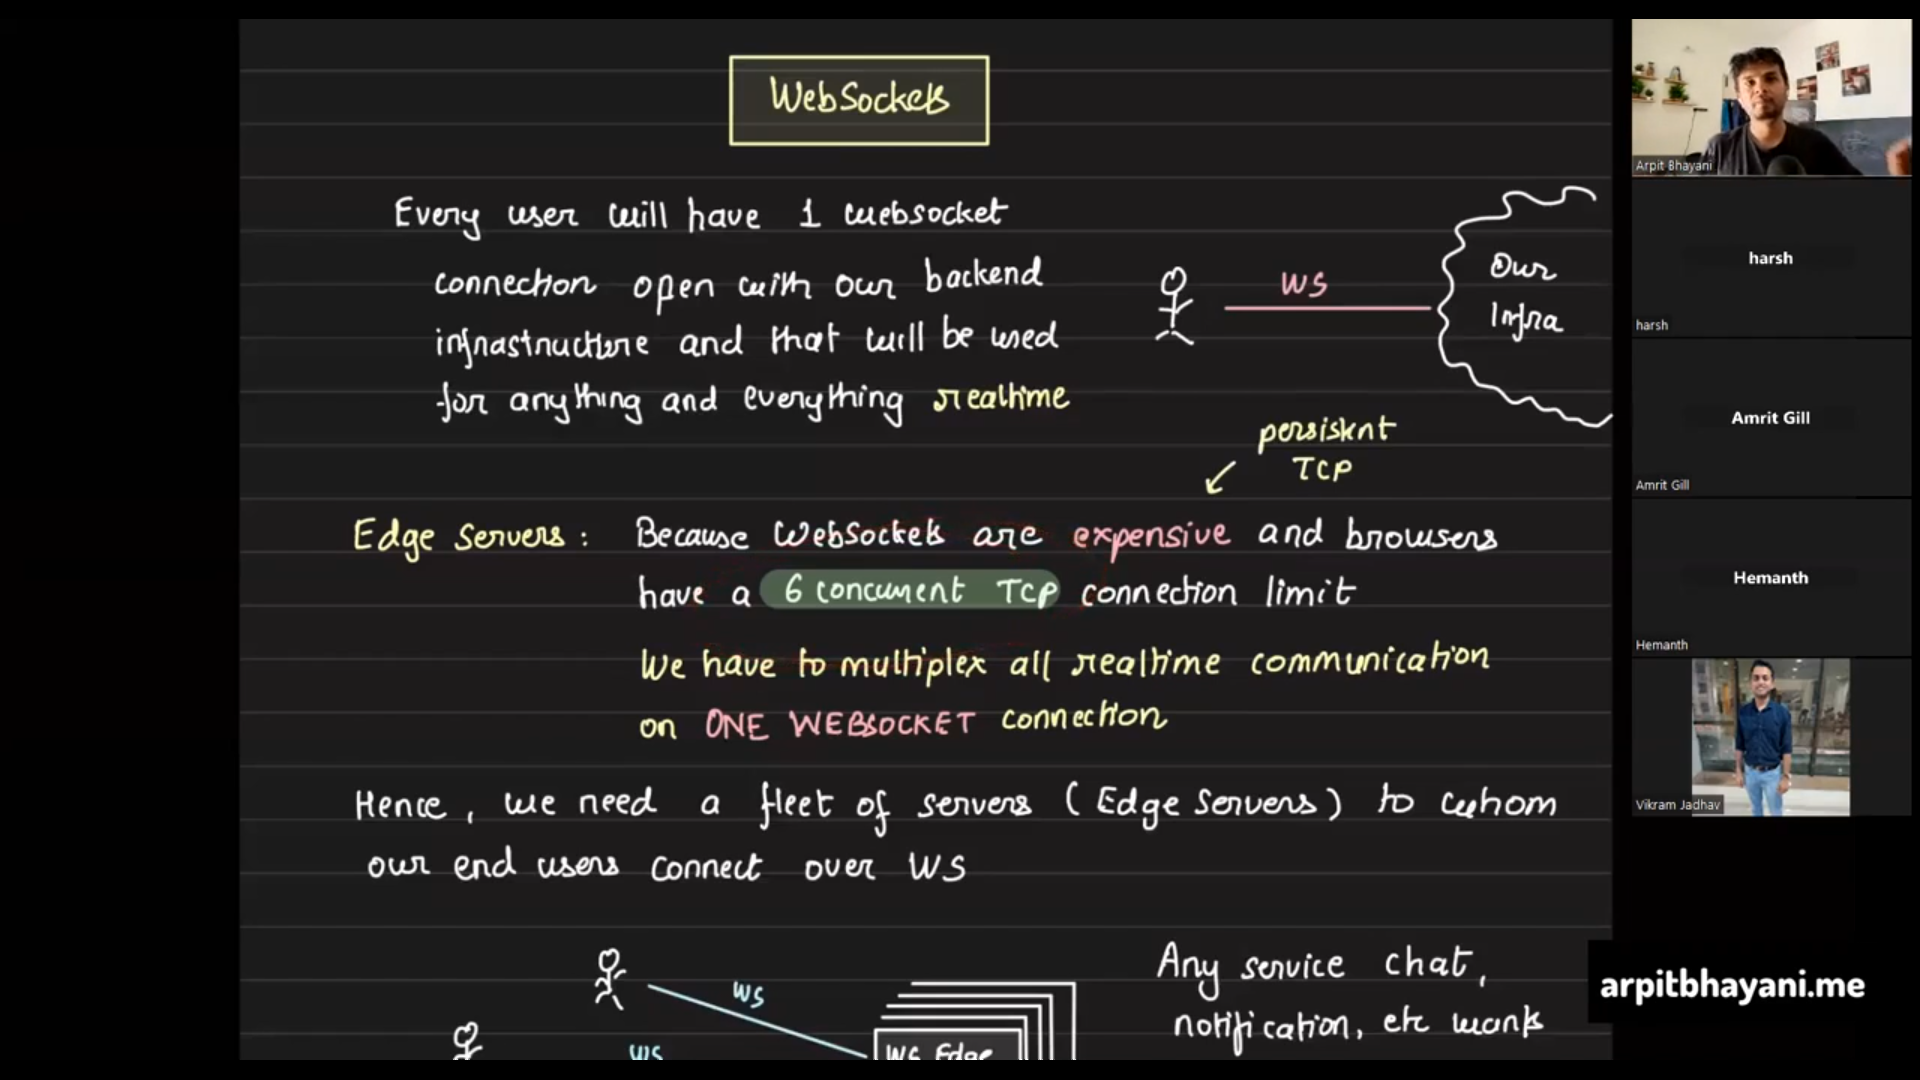 WebSockets
Every user will have 1 websocket
connection open with our backend
infrastructure and that will be used
for anything and everything realtime
WS
Our
Infra
persistent
TCP
Edge Servers : Because WebSockets are expensive and browsers
have a 6 concurrent TCP connection limit
We have to multiplex all realtime communication
on ONE WEBSOCKET connection
Hence, we need a fleet of servers (Edge Servers) to whom
our end users connect over WS
WS
WS
WS Edge
Any service chat,
notification, etc wants
Arpit Bhayani
harsh
harsh
Amrit Gill
Amrit Gill
Hemanth
Hemanth
Vikram Jadhav
arpitbhayani.me